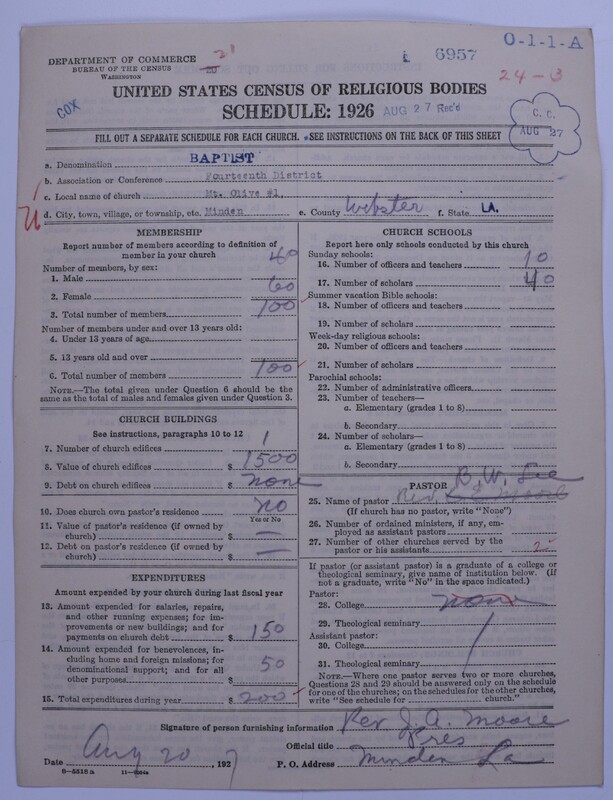 DEPARTMENT OF COMMERCE
BUREAU OF THE CENSUS
WASHINGTON
20 21
6957
O-1-1-A
24-3
COX
UNITED STATES CENSUS OF RELIGIOUS BODIES
SCHEDULE: 1926
AUG 27 Rec'd
C. C.
AUG 27
FILL OUT A SEPARATE SCHEDULE FOR EACH CHURCH. SEE INSTRUCTIONS ON THE BACK OF THIS SHEET
a. Denomination BAPTIST
b. Association or Conference Fourteenth District
c. Local name of church Mt. Olive #1,
d. City, town, village, or township, etc. Minden e. County Webster f. State LA.
MEMBERSHIP
Report number of members according to definition of
member in your church
Number of members, by sex:
1. Male 40
2. Female 60
3. Total number of members 100
Number of members under and over 13 years old:
4. Under 13 years of age
5. 13 years old and over
6. Total number of members 100
NOTE.—The total given under Question 6 should be the
same as the total of males and females given under Question 3.
CHURCH BUILDINGS
See instructions, paragraphs 10 to 12
7. Number of church edifices 1
8. Value of church edifices $ 1500
9. Debt on church edifices $ none
10. Does church own pastor's residence no
Yes or No
11. Value of pastor's residence (if owned by
church) $ —
12. Debt on pastor's residence (if owned by
church) $ —
EXPENDITURES
Amount expended by your church during last fiscal year
13. Amount expended for salaries, repairs,
and other running expenses; for im-
provements or new buildings; and for
payments on church debt $ 150
14. Amount expended for benevolences, in-
cluding home and foreign missions; for
denominational support; and for all
other purposes $ 50
15. Total expenditures during year $ 200
CHURCH SCHOOLS
Report here only schools conducted by this church
Sunday schools:
16. Number of officers and teachers 10
17. Number of scholars 40
Summer vacation Bible schools:
18. Number of officers and teachers
19. Number of scholars
Week-day religious schools:
20. Number of officers and teachers
21. Number of scholars
Parochial schools:
22. Number of administrative officers
23. Number of teachers—
a. Elementary (grades 1 to 8)
b. Secondary
24. Number of scholars—
a. Elementary (grades 1 to 8)
b. Secondary
PASTOR
B. W. Lee
25. Name of pastor Rev. Moore
(If church has no pastor, write "None")
26. Number of ordained ministers, if any, em-
ployed as assistant pastors
27. Number of other churches served by the
pastor or his assistants 2
If pastor (or assistant pastor) is a graduate of a college or
theological seminary, give name of institution below. (If
not a graduate, write "No" in the space indicated.)
Pastor:
28. College none
29. Theological seminary
Assistant pastor:
30. College
31. Theological seminary
NOTE.—Where one pastor serves two or more churches,
Questions 28 and 29 should be answered only on the schedule
for one of the churches; on the schedules for the other churches,
write "See schedule for church."
Signature of person furnishing information Rev J. A. Moore
Official title Pres
Date Aug 20, 1927 P. O. Address Minden La
8—5518 a